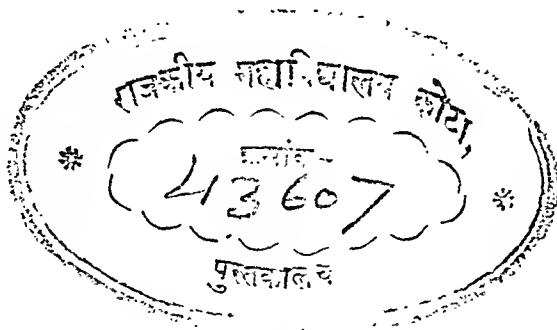 राजकीय महाविद्यालय कोटा,
क्रमांक -
43607
पुस्तकालय